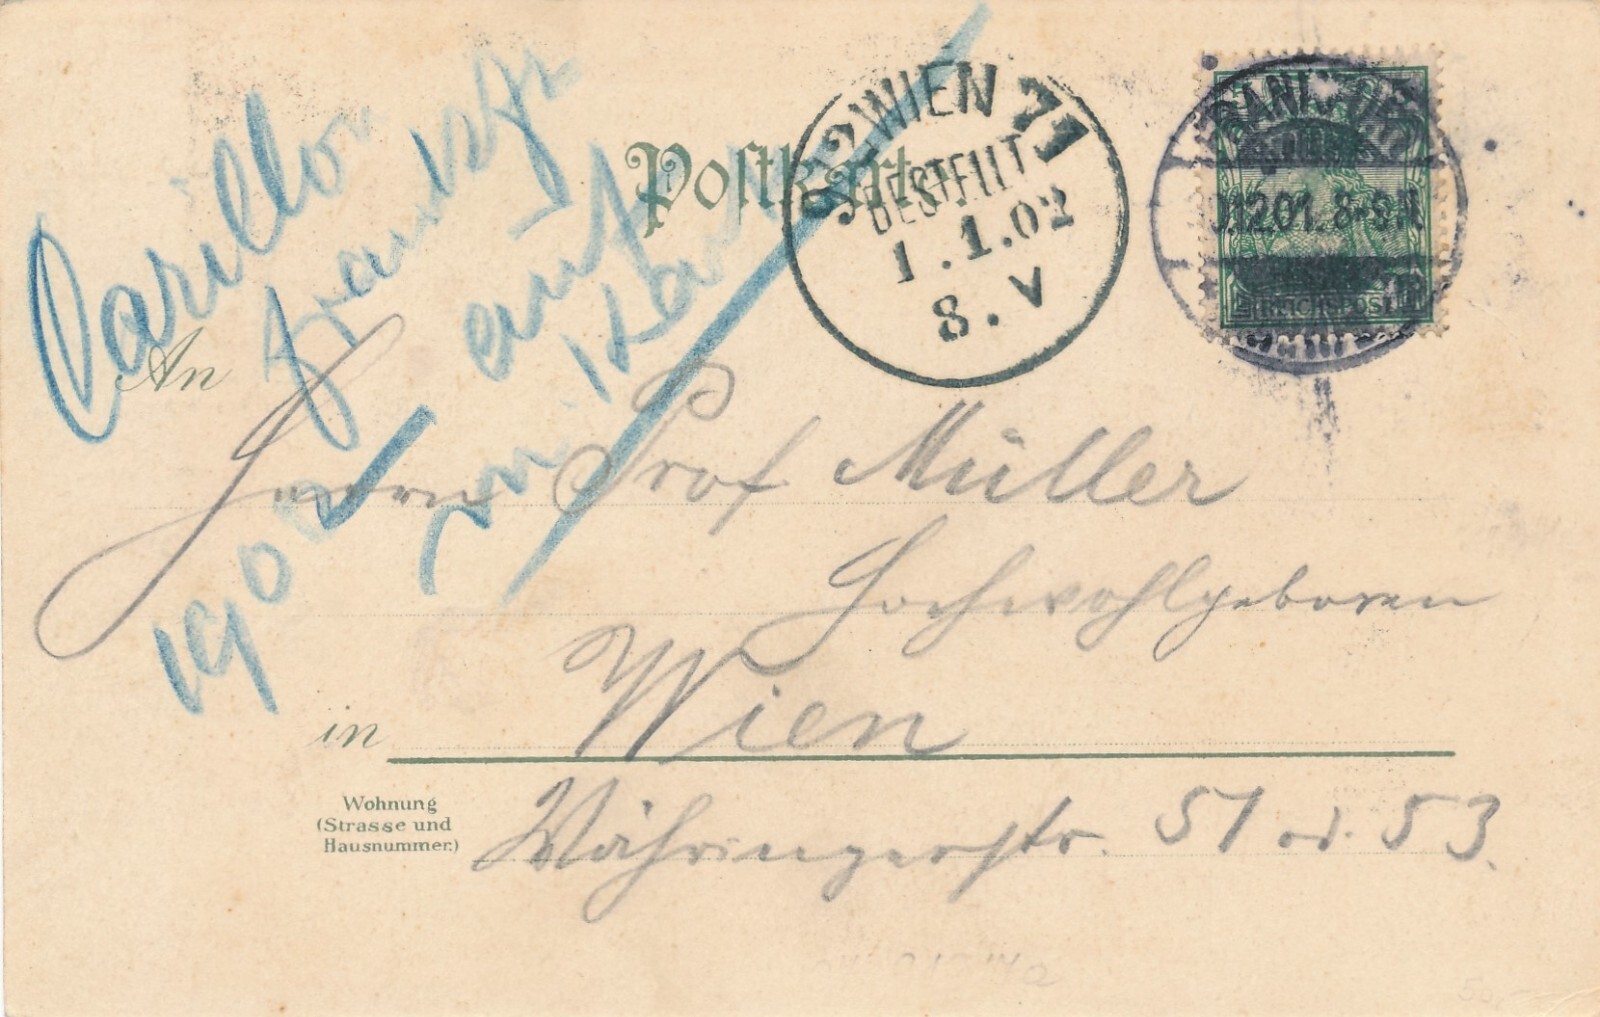 Postkarte
9/2 WIEN 71
BESTELLT
1.1.02
8.V
12.01. 8-9 N.
REICHSPOST
Carillon
auf
190
An
Herrn Prof Müller
Hochwohlgeboren
in Wien
Wohnung
(Strasse und
Hausnummer.)
Währingerstr. 51 od. 53.